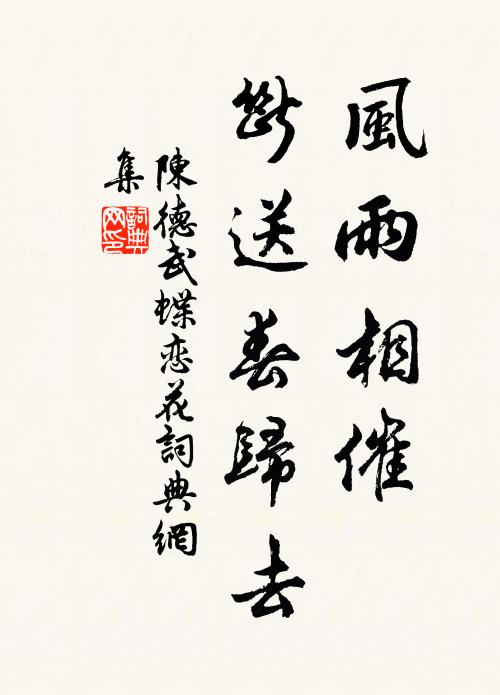 風雨相催
斷送春歸去
陳德武蝶恋花詞典網
集
詞典
网印